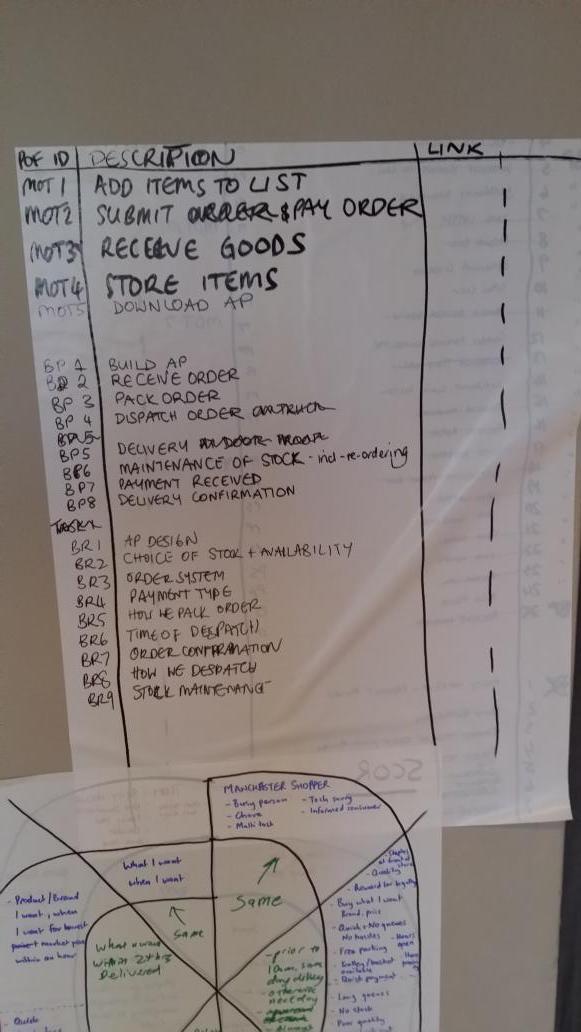 POF ID DESCRIPTION LINK
MOT1 ADD ITEMS TO LIST
MOT2 SUBMIT & PAY ORDER
MOT3 RECEIVE GOODS
MOT4 STORE ITEMS
MOT5 DOWNLOAD AP
BP 1 BUILD AP
BP 2 RECEIVE ORDER
BP 3 PACK ORDER
BP 4 DISPATCH ORDER
BP5 DELIVERY
BP6 MAINTENANCE OF STOCK - incl - re-ordering
BP7 PAYMENT RECEIVED
BP8 DELIVERY CONFIRMATION
BR1 AP DESIGN
BR2 CHOICE OF STOCK + AVAILABILITY
BR3 ORDER SYSTEM
BR4 PAYMENT TYPE
BR5 HOW WE PACK ORDER
BR6 TIME OF DESPATCH
BR7 ORDER CONFIRMATION
BR8 HOW WE DESPATCH
BR9 STOCK MAINTENANCE
MANCHESTER SHOPPER
- Busy person - Tech savvy
- Informed consumer
- Multi task
What I want
when I want
Same
Same
- Product/Brand
I want, when
I want for lowest
market price
within an hour
within 2hrs
Delivered
- prior to
10am, same
day delivery
- otherwise
next day
- Quality
- Reward for loyalty
- Buy what I want
Brand, price
- Quick + No queues
No hassles
- Free parking
- Quick payment
- Long queues
- No stock
Poor quality